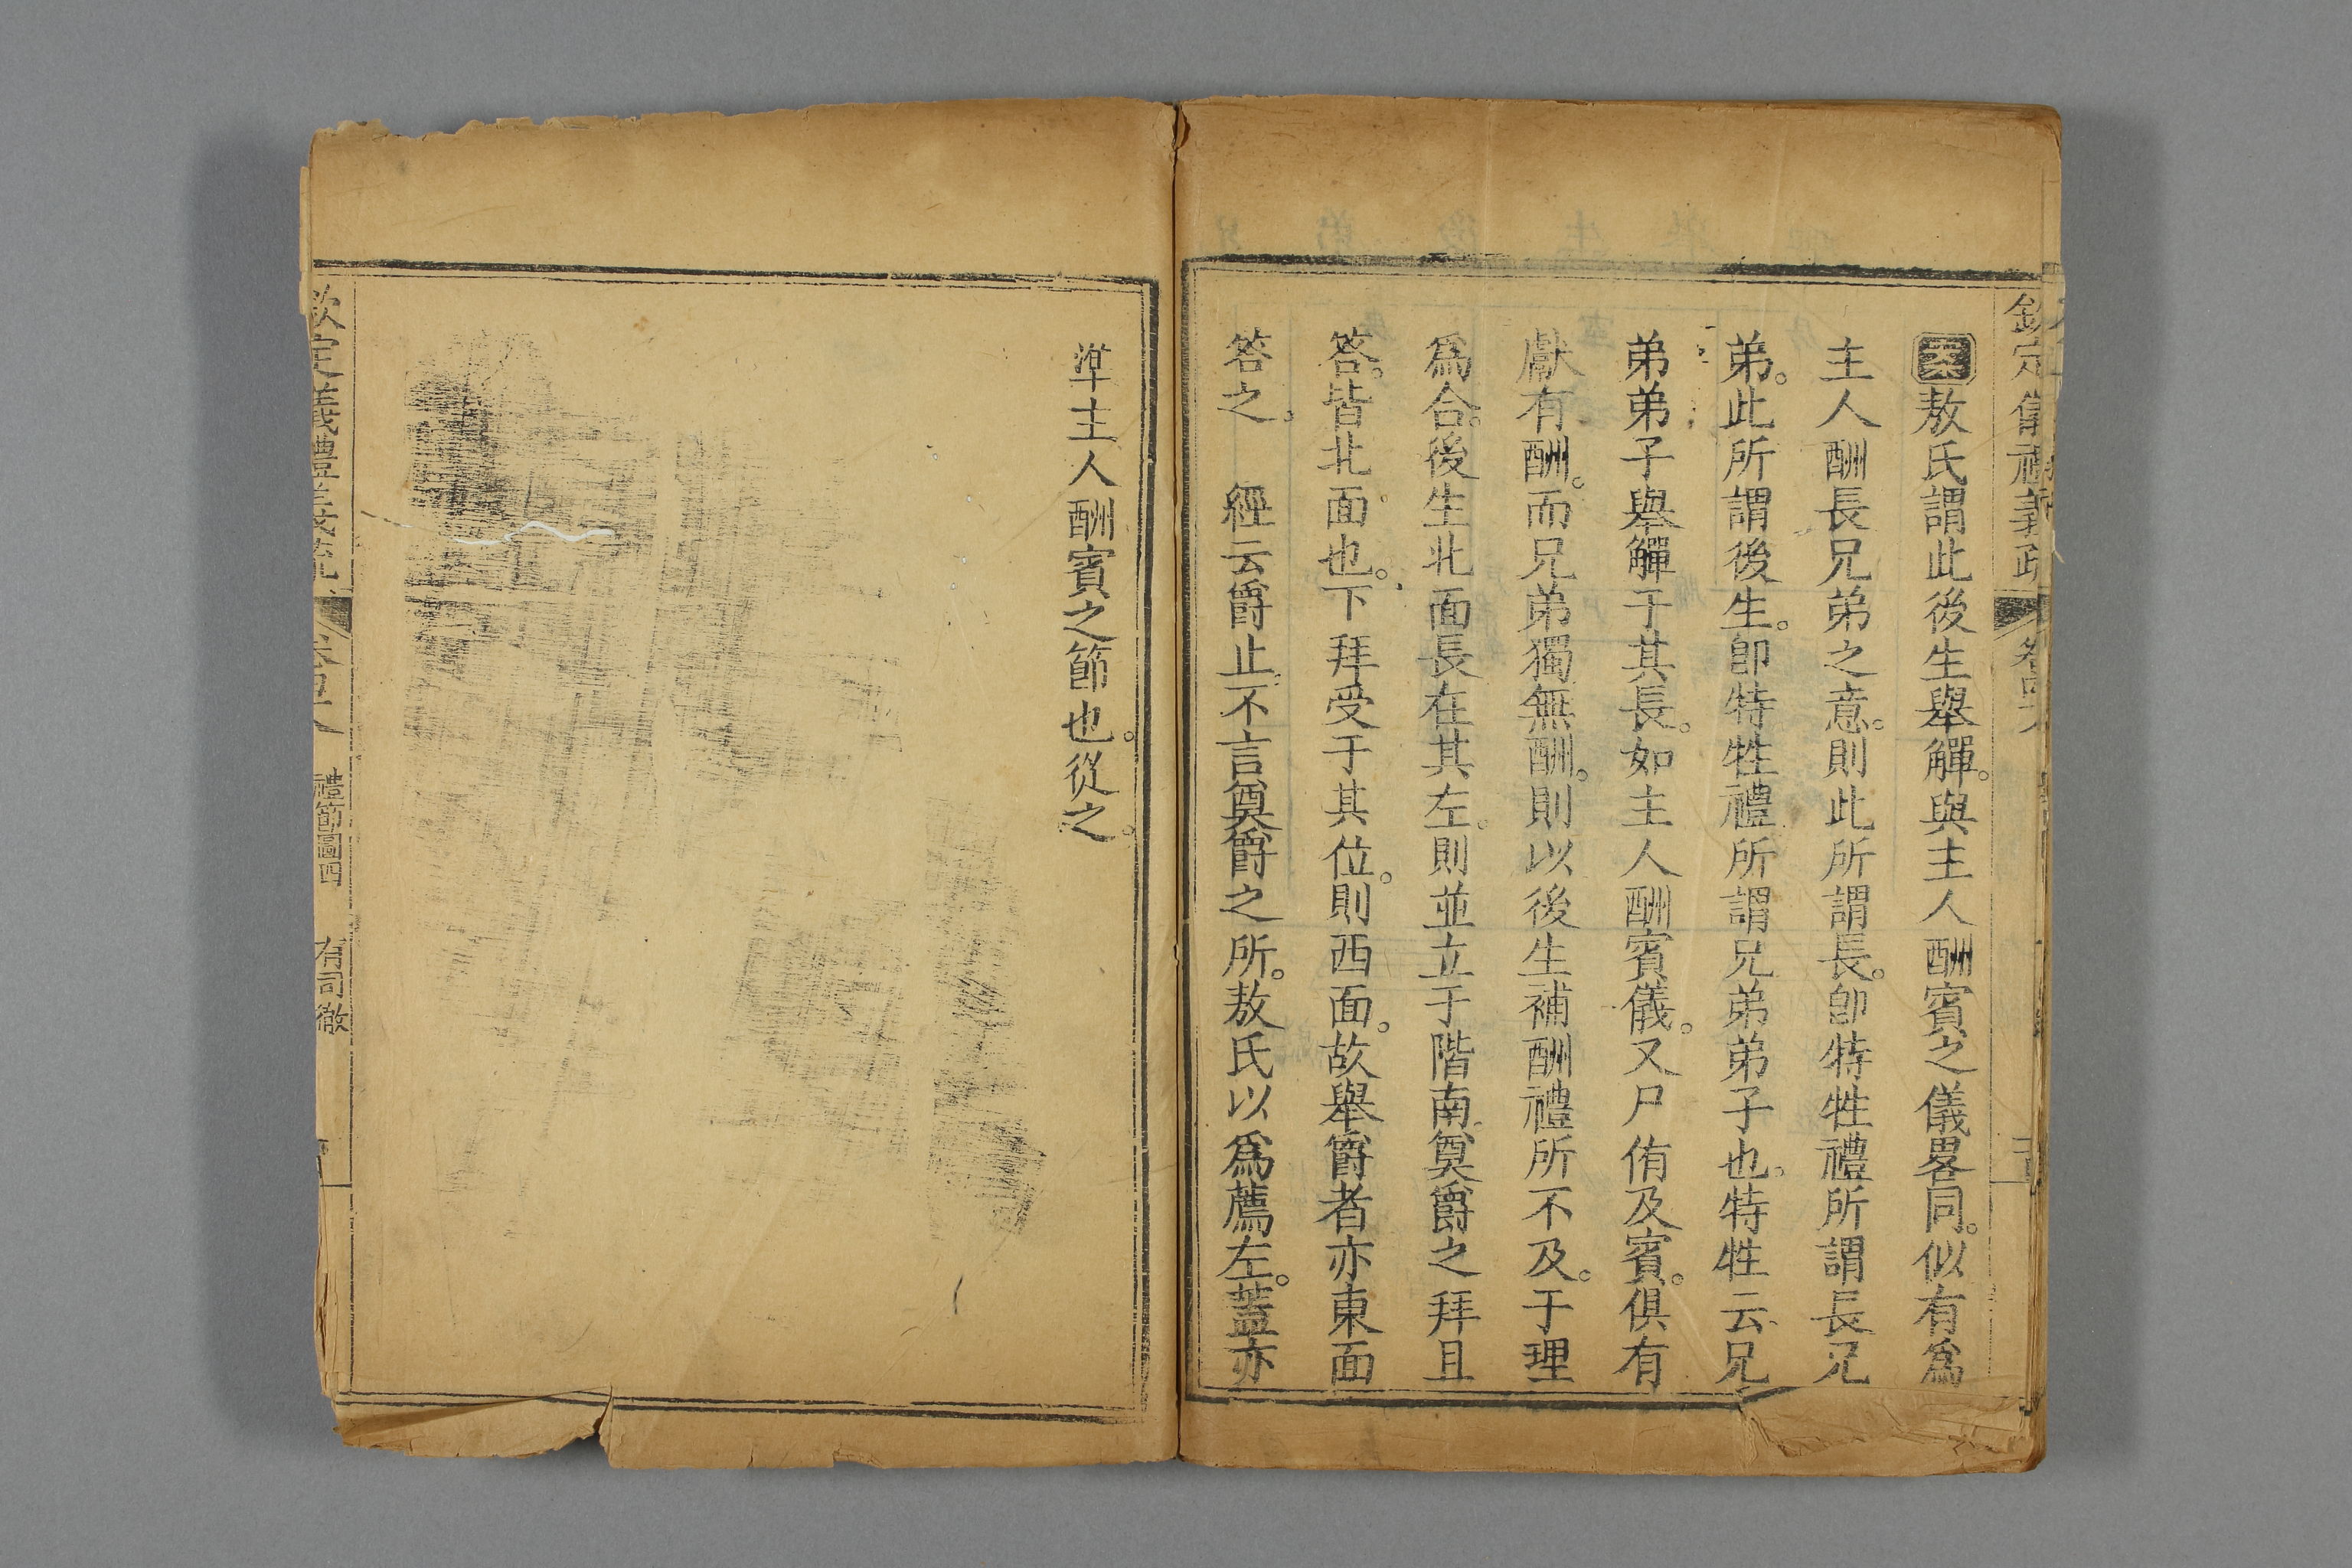 欽定儀禮義疏 卷四十八
案敖氏謂此後生舉觶。與主人酬賓之儀畧同。似有為
主人酬長兄弟之意。則此所謂長。卽特牲禮所謂長兄
弟。此所謂後生。卽特牲禮所謂兄弟弟子也。特牲云兄
弟弟子舉觶于其長。如主人酬賓儀。又尸侑及賓。俱有
獻有酬。而兄弟獨無酬。則以後生補酬禮所不及。于理
為合。後生北面長在其左。則並立于階南。奠爵之拜且
答。皆北面也。下拜受于其位。則西面。故舉爵者亦東面
答之。 經云爵止。不言奠爵之所。敖氏以為薦左。蓋亦
準主人酬賓之節也。從之。
欽定儀禮義疏 卷四十八 禮節圖四 有司徹